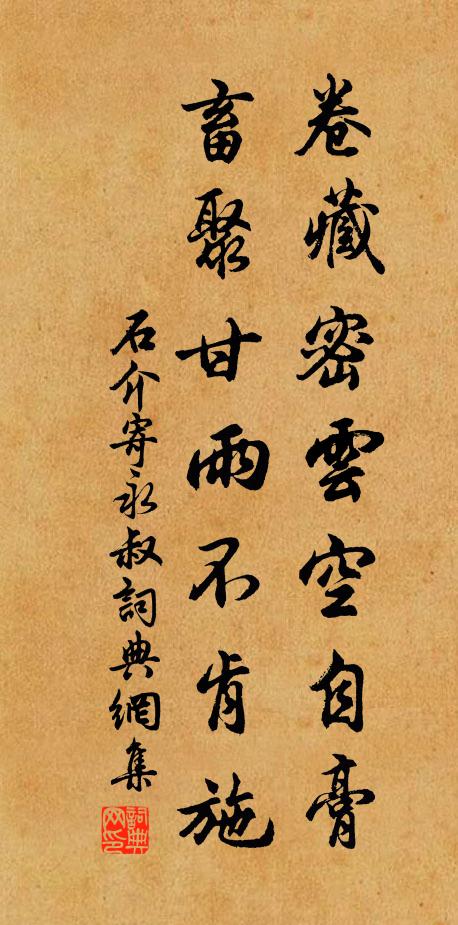 卷藏密雲空自膏
畜聚甘雨不肯施
石介寄永叔詞典網集
詞典網印